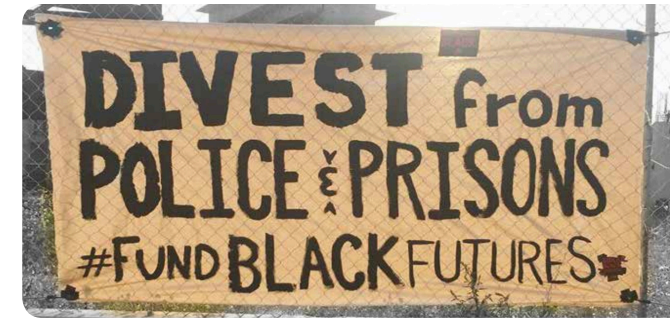 DIVEST from
POLICE & PRISONS
#FUND BLACK FUTURES